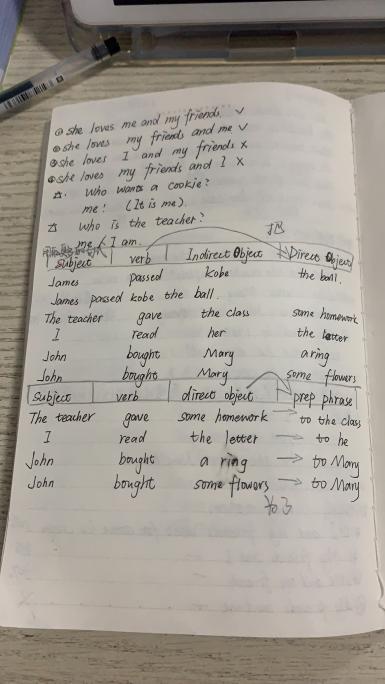 ① she loves me and my friends. ✓
② she loves my friends and me ✓
③ she loves I and my friends ×
④ she loves my friends and I ×
△. Who wants a cookie?
me! (It is me).
△ Who is the teacher?
me / I am.
把
Subject verb Indirect Object Direct Object
James passed kobe the ball.
James passed kobe the ball.
The teacher gave the class some homework
I read her the letter
John bought Mary a ring
John bought Mary some flowers
Subject verb direct object prep phrase
The teacher gave some homework → to the class
I read the letter → to he
John bought a ring → to Mary
John bought some flowers → to Mary
为了